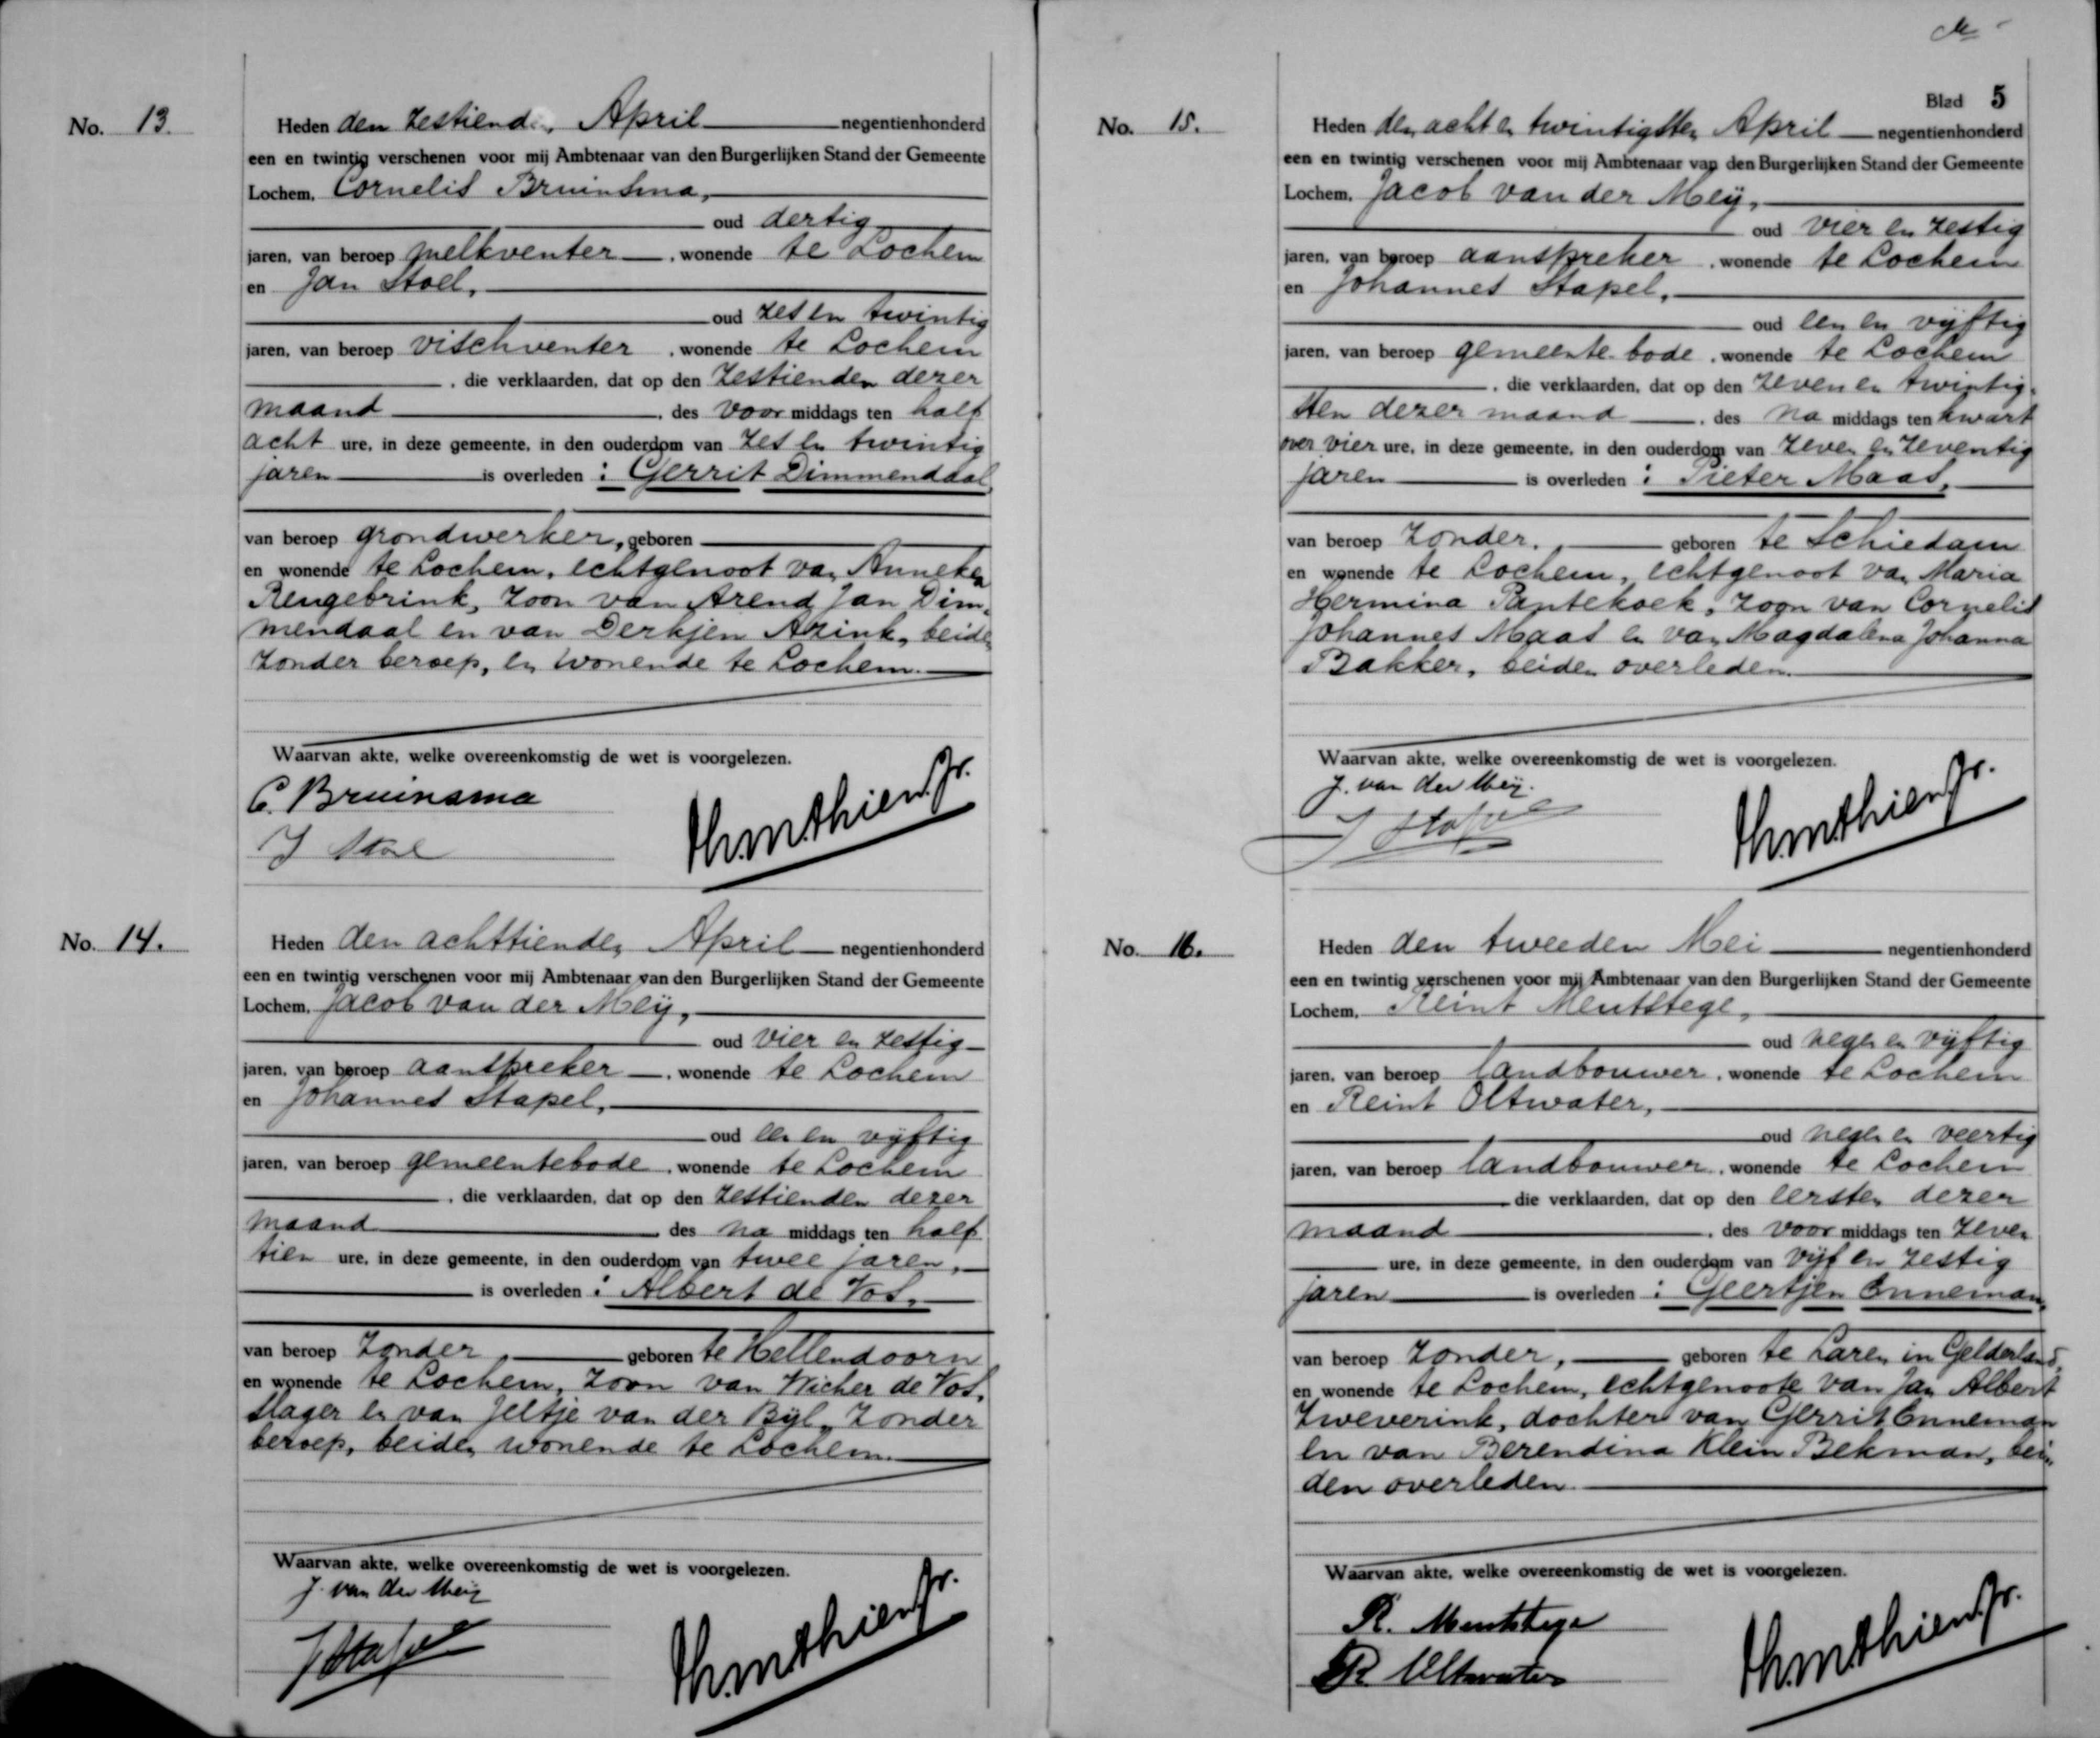 No. 13.
Heden den zestienden April negentienhonderd
een en twintig verschenen voor mij Ambtenaar van den Burgerlijken Stand der Gemeente
Lochem, Cornelis Bruinsma,
oud dertig
jaren, van beroep melkventer, wonende te Lochem
en Jan Stoel,
oud zes en twintig
jaren, van beroep vischventer, wonende te Lochem
, die verklaarden, dat op den zestienden dezer
maand, des voor middags ten half
acht ure, in deze gemeente, in den ouderdom van zes en twintig
jaren is overleden: Gerrit Dimmendaal,
van beroep grondwerker, geboren
en wonende te Lochem, echtgenoot van Anneken
Rengebrink, zoon van Arend Jan Dim-
mendaal en van Derkjen Azink, beiden
zonder beroep, en wonende te Lochem.
Waarvan akte, welke overeenkomstig de wet is voorgelezen.
C. Bruinsma
J Stoel
No. 14.
Heden den achttienden April negentienhonderd
een en twintig verschenen voor mij Ambtenaar van den Burgerlijken Stand der Gemeente
Lochem, Jacob van der Meij,
oud vier en zestig
jaren, van beroep aanspreker, wonende te Lochem
en Johannes Stapel,
oud een en vijftig
jaren, van beroep gemeentebode, wonende te Lochem
, die verklaarden, dat op den zestienden dezer
maand, des na middags ten half
tien ure, in deze gemeente, in den ouderdom van twee jaren,
is overleden: Albert de Vos,
van beroep zonder, geboren te Hellendoorn
en wonende te Lochem, zoon van Wicher de Vos,
slager en van Jeltje van der Bijl, zonder
beroep, beiden wonende te Lochem.
Waarvan akte, welke overeenkomstig de wet is voorgelezen.
J. van der Meij
J Stapel
Blad 5
No. 15.
Heden den acht en twintigsten April negentienhonderd
een en twintig verschenen voor mij Ambtenaar van den Burgerlijken Stand der Gemeente
Lochem, Jacob van der Meij,
oud vier en zestig
jaren, van beroep aanspreker, wonende te Lochem
en Johannes Stapel,
oud een en vijftig
jaren, van beroep gemeente-bode, wonende te Lochem
, die verklaarden, dat op den zeven en twintig-
sten dezer maand, des na middags ten kwart
over vier ure, in deze gemeente, in den ouderdom van zeven en zeventig
jaren is overleden: Pieter Maas,
van beroep zonder, geboren te Schiedam
en wonende te Lochem, echtgenoot van Maria
Hermina Pantekoek, zoon van Cornelis
Johannes Maas en van Magdalena Johanna
Bakker, beiden overleden.
Waarvan akte, welke overeenkomstig de wet is voorgelezen.
J. van der Meij.
J Stapel
No. 16.
Heden den tweeden Mei negentienhonderd
een en twintig verschenen voor mij Ambtenaar van den Burgerlijken Stand der Gemeente
Lochem, Reint Meutstege,
oud negen en vijftig
jaren, van beroep landbouwer, wonende te Lochem
en Reint Oltwater,
oud negen en veertig
jaren, van beroep landbouwer, wonende te Lochem
die verklaarden, dat op den eersten dezer
maand, des voor middags ten zeven
ure, in deze gemeente, in den ouderdom van vijf en zestig
jaren is overleden: Geertjen Enneman,
van beroep zonder, geboren te Laren in Gelderland,
en wonende te Lochem, echtgenoote van Jan Albert
Zweverink, dochter van Gerrit Enneman
en van Berendina Klein Bekman, bei-
den overleden.
Waarvan akte, welke overeenkomstig de wet is voorgelezen.
R. Meutstege
R Oltwater